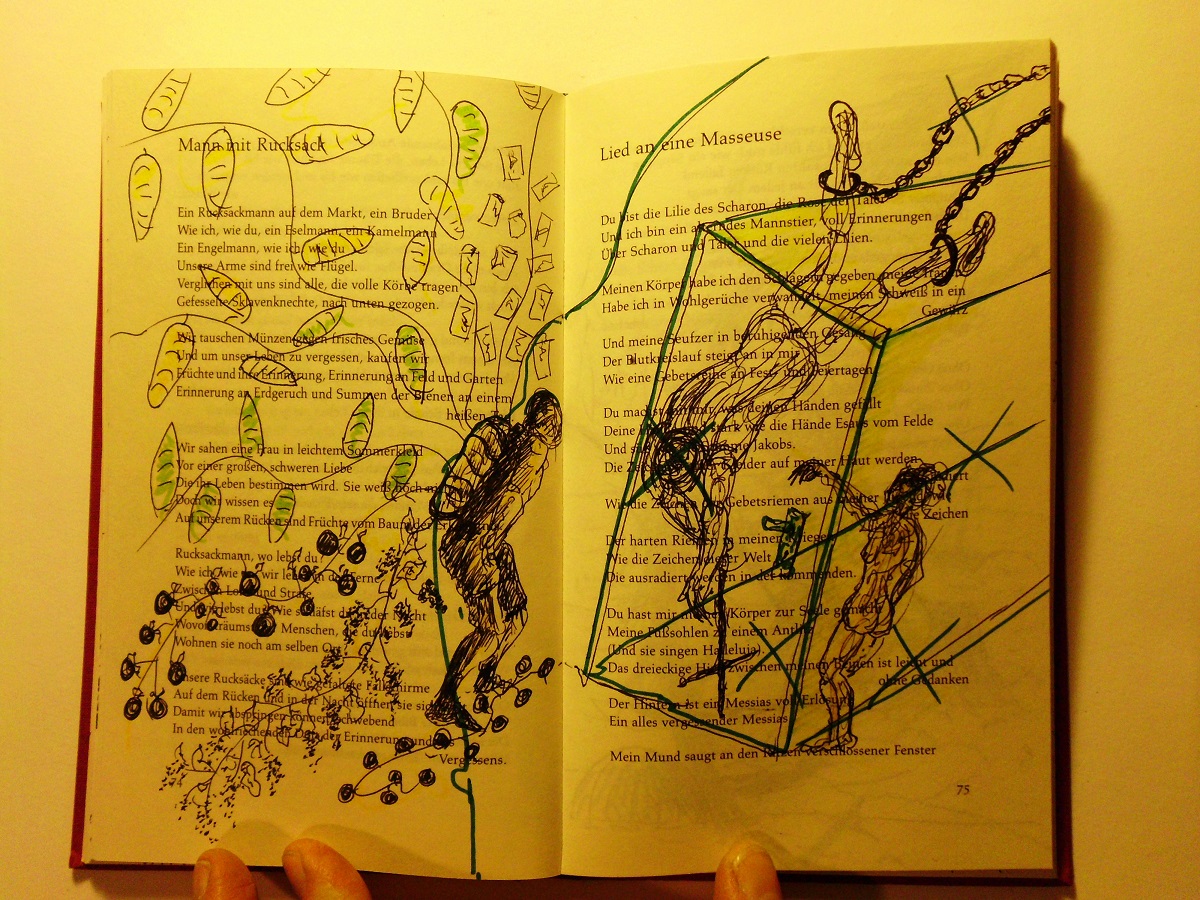 Mann mit Rucksack
Ein Rucksackmann auf dem Markt, ein Bruder
Wie ich, wie du, ein Eselmann, ein Kamelmann
Ein Engelmann, wie ich, wie du
Unsere Arme sind frei wie Flügel.
Verglichen mit uns sind alle, die volle Körbe tragen
Gefesselte Sklavenknechte, nach unten gezogen.
Wir tauschen Münzen gegen frisches Gemüse
Und um unser Leben zu vergessen, kaufen wir
Früchte und ihre Erinnerung, Erinnerung an Feld und Garten
Erinnerung an Erdgeruch und Summen der Bienen an einem
heißen
Wir sahen eine Frau in leichtem Sommerkleid
Vor einer großen, schweren Liebe
Die ihr Leben bestimmen wird. Sie weiß noch
Doch wir wissen es
Auf unserem Rücken sind Früchte vom Baum der
Rucksackmann, wo lebst du
Wie ich, wie wir leben in der Ferne
Zwischen und Strafe
Und wo lebst du? Wie schläfst du in der Nacht
Wovon träumst Menschen, die du liebst
Wohnen sie noch am selben Ort
Unsere Rucksäcke sind wie gefaltete Fallschirme
Auf dem Rücken und in der Nacht öffnen sie sich
Damit wir abspringen können, hochwebend
In den wohlriechenden der Erinnerung und des
Vergessens.
Lied an eine Masseuse
Du bist die Lilie des Scharon, die Rose der Täler
Und ich bin ein Mannstier, voll Erinnerungen
Über Scharon und Täler und die vielen Lilien.
Meinen Körper habe ich den Schlägern gegeben, meine
Habe ich in Wohlgerüche verwandelt, meinen Schweiß in ein
Gewürz
Und meine Seufzer in beruhigenden Gesang
Der Blutkreislauf steigt an in mir
Wie eine Gebetsreihe an Fest- und Feiertagen.
Du machst mit mir, was deinen Händen gefällt
Deine stark wie die Hände Esavs vom Felde
Und Jakobs.
Die auf meiner Haut werden
Wie die Zeichen Gebetsriemen aus meiner
die Zeichen
Der harten Riemen in meinen
Wie die Zeichen dieser Welt
Die ausradiert werden in der kommenden.
Du hast mir meinen Körper zur Seele gemacht
Meine Fußsohlen zu einem Antlitz
(Und sie singen Halleluja).
Das dreieckige Hirn zwischen meinen Beinen ist leicht und
ohne Gedanken
Der Hintern ist ein Messias voll Erlösung
Ein alles vergessender Messias
Mein Mund saugt an den Ritzen verschlossener Fenster
75